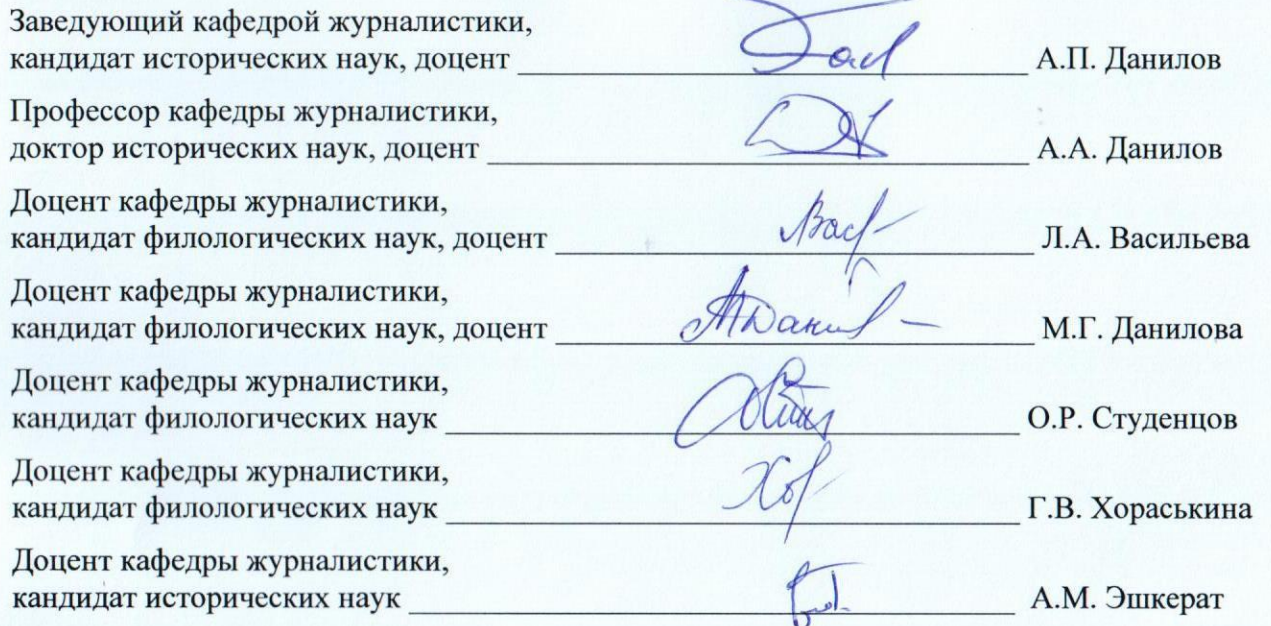 Заведующий кафедрой журналистики,
кандидат исторических наук, доцент А.П. Данилов
Профессор кафедры журналистики,
доктор исторических наук, доцент А.А. Данилов
Доцент кафедры журналистики,
кандидат филологических наук, доцент Л.А. Васильева
Доцент кафедры журналистики,
кандидат филологических наук, доцент М.Г. Данилова
Доцент кафедры журналистики,
кандидат филологических наук О.Р. Студенцов
Доцент кафедры журналистики,
кандидат филологических наук Г.В. Хораськина
Доцент кафедры журналистики,
кандидат исторических наук А.М. Эшкерат